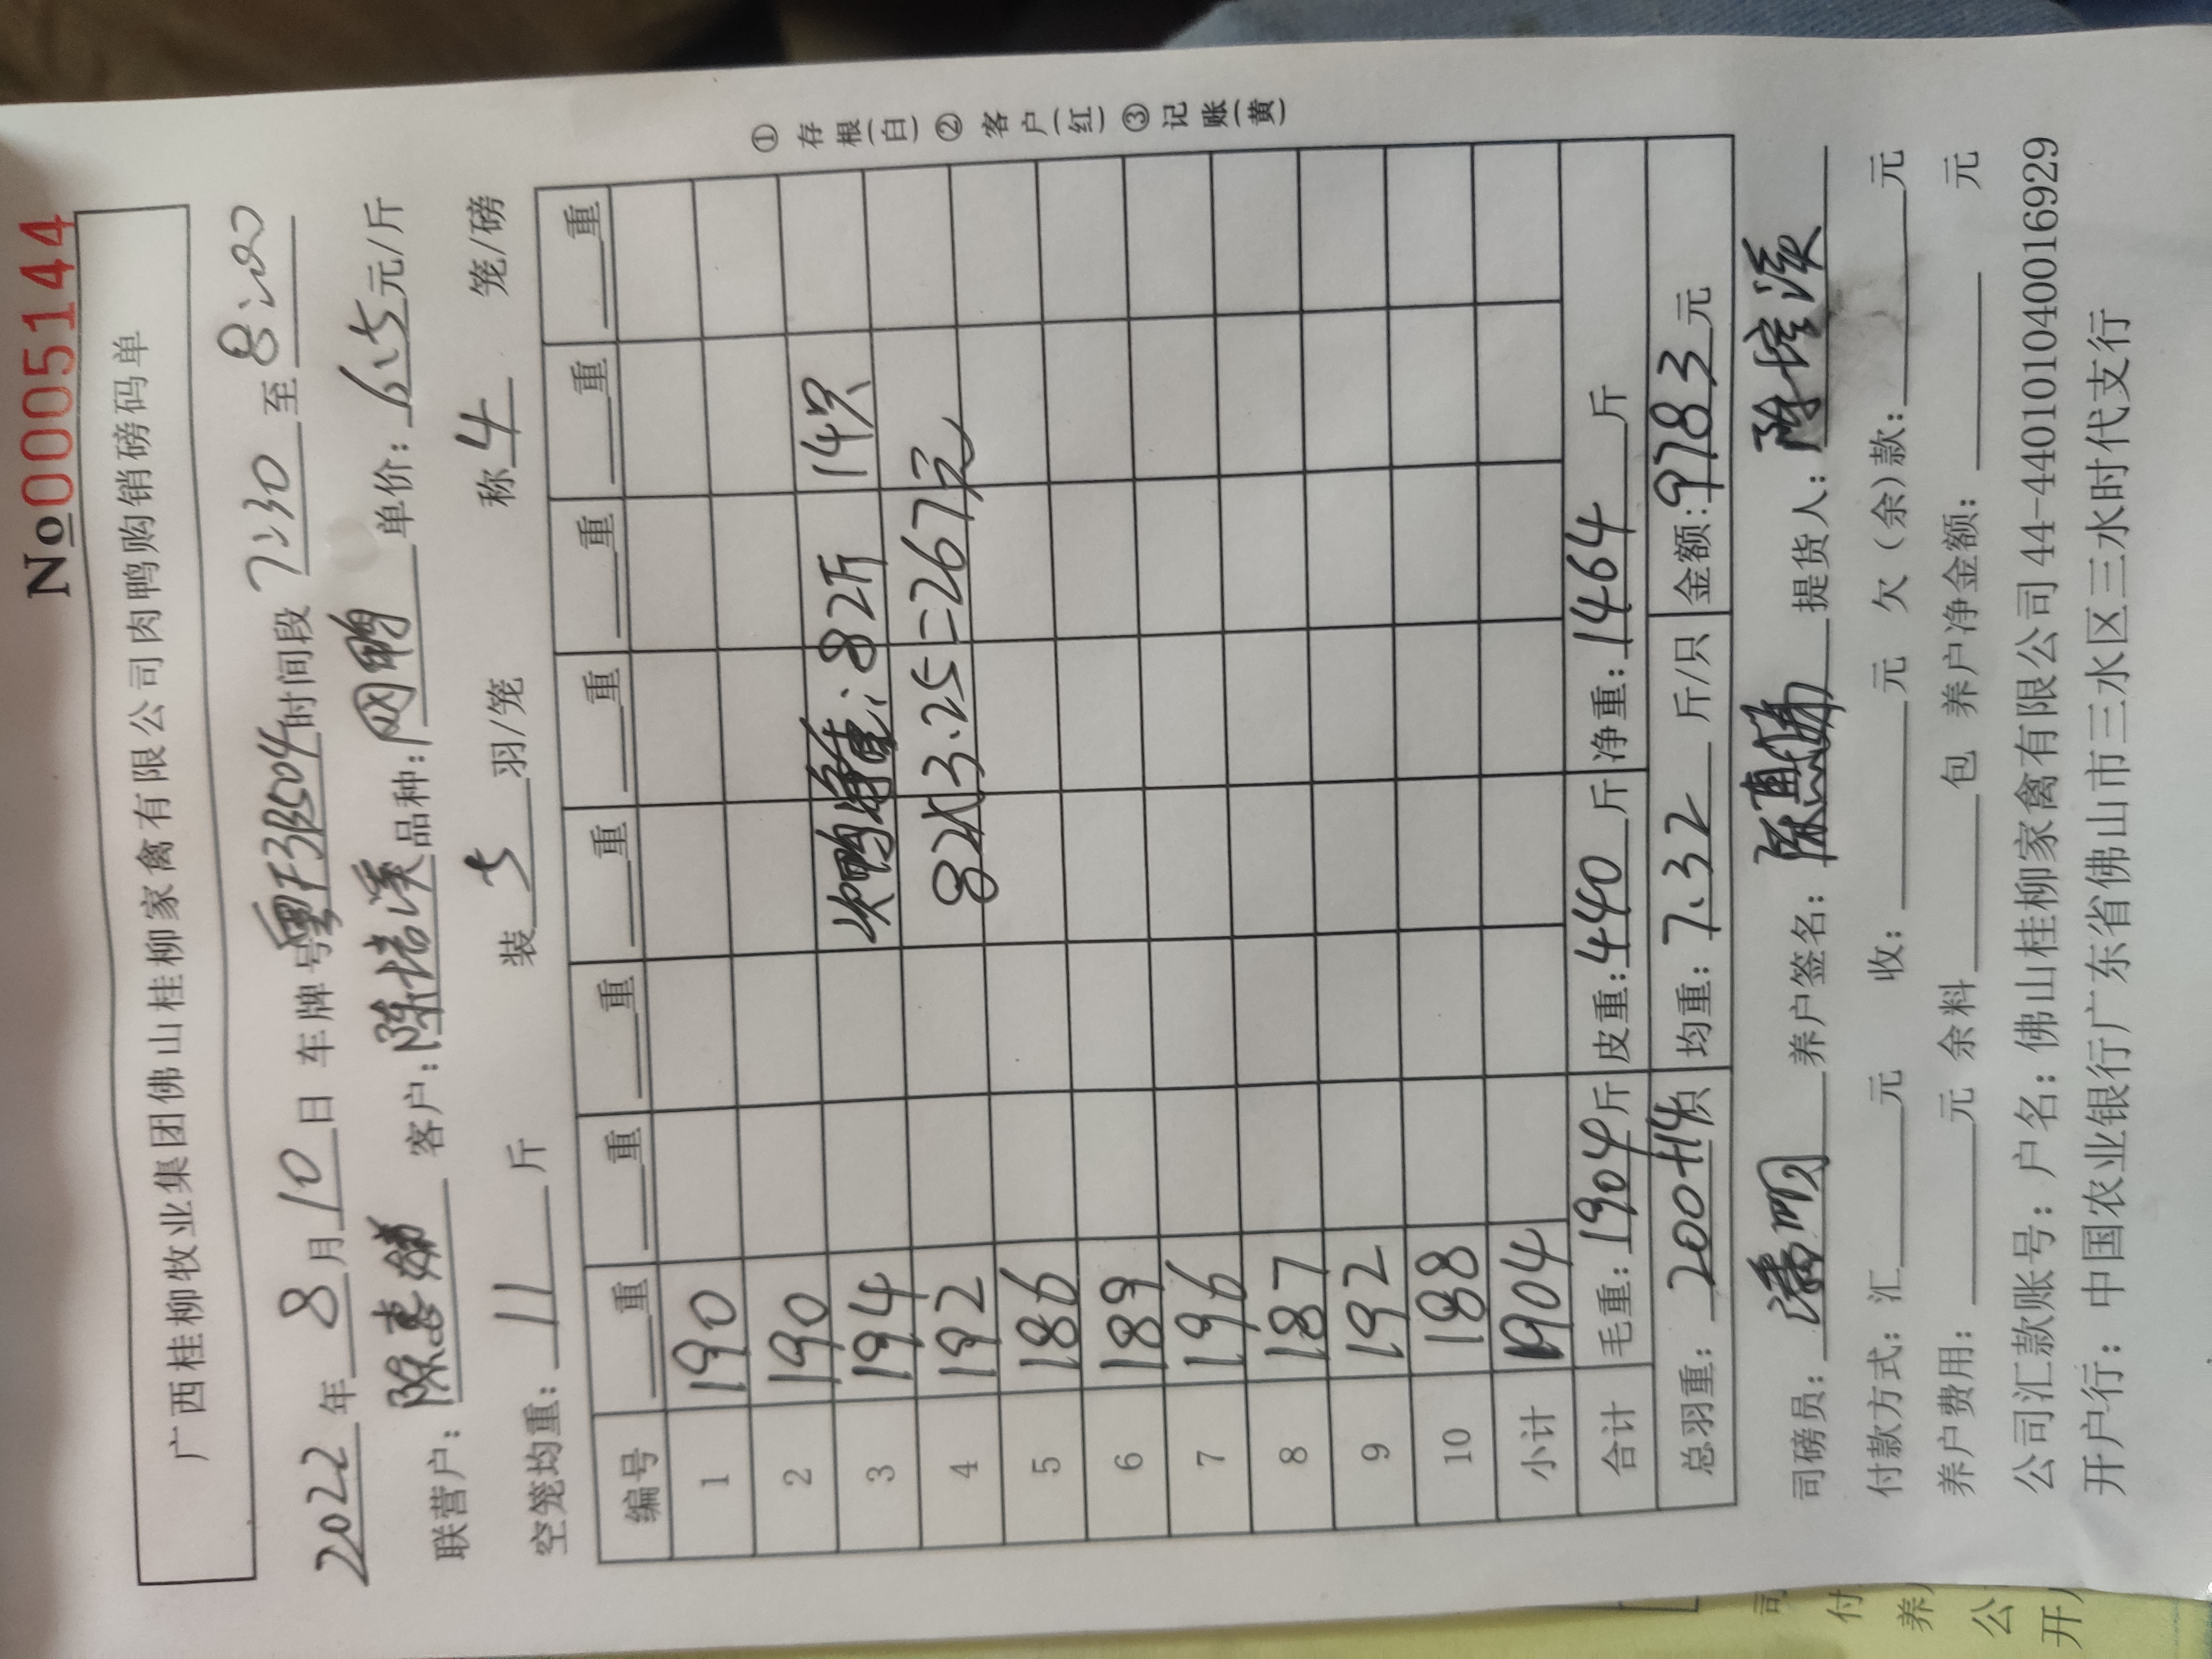 No 0005144
广西桂柳牧业集团佛山桂柳家禽有限公司肉鸭购销磅码单
2022 年 8 月 10 日 车牌号 粤T3B504 时间段 7:30 至 8:20
联营户: 陈惠娣 客户: 陈培溪 品种: 网鸭 单价: 6.5 元/斤
空笼均重: 11 斤 装 5 羽/笼 称 4 笼/磅
编号 重 重 重 重 重 重 重 重
1 190
2 190
3 194 次鸭净重: 82斤 14只
4 192 82×3.25=267元
5 186
6 189
7 196
8 187
9 192
10 188
小计 1904
合计 毛重: 1904 斤 皮重: 440 斤 净重: 1464 斤
总羽重: 200+14 只 均重: 7.32 斤/只 金额: 9783 元
①存根(白)②客户(红)③记账(黄)
司磅员: 养户签名: 提货人:
付款方式: 汇 元 收: 元 欠(余)款: 元
养户费用: 元 余料 包 养户净金额: 元
公司汇款账号: 户名: 佛山桂柳家禽有限公司 44-440101040016929
开户行: 中国农业银行广东省佛山市三水区三水时代支行